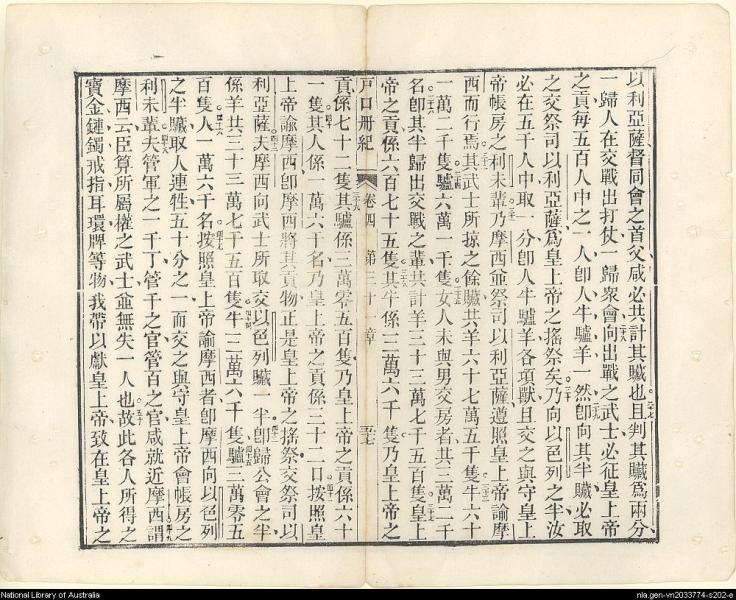 以利亞薩督同會之首父咸必共計其贓也且判其贓爲兩分
一歸人在交戰出打仗一歸衆會向出戰之武士必征皇上帝
之貢每五百人中之一人卽人牛驢羊一然卽向其半贓必取
之交祭司以利亞薩爲皇上帝之搖祭矣乃向以色列之半汝
必在五十人中取一分卽人牛驢羊各項獸且交之與守皇上
帝帳房之利未輩乃摩西並祭司以利亞薩遵照皇上帝諭摩
西而行焉其武士所掠之餘贓共羊六十七萬五千隻牛六十
一萬二千隻驢六萬一千隻女人未與男交房者共三萬二千
名卽其半歸出交戰之輩共計羊三十三萬七千五百隻皇上
帝之貢係六百七十五隻其牛係三萬六千隻乃皇上帝之
戶口册紀 卷四 第三十一章
貢係七十二隻其驢係三萬零五百隻乃皇上帝之貢係六十
一隻其人係一萬六千名乃皇上帝之貢係三十二口按照皇
上帝諭摩西卽摩西將其貢物正是皇上帝之搖祭交祭司以
利亞薩夫摩西向武士所取交以色列贓一半卽歸公會之半
係羊共三十三萬七千五百隻牛三萬六千隻驢三萬零五
百隻人一萬六千名按照皇上帝諭摩西者卽摩西向以色列
之半贓取人連牲五十分之一而交之與守皇上帝會帳房之
利未輩夫管軍之一千丁管千之官管百之官咸就近摩西謂
摩西云臣算所屬權之武士並無失一人也故此各人所得之
寶金鏈鐲戒指耳環牌等物我帶以獻皇上帝致在皇上帝之
National Library of Australia
nla.gen-vn2033774-s202-e